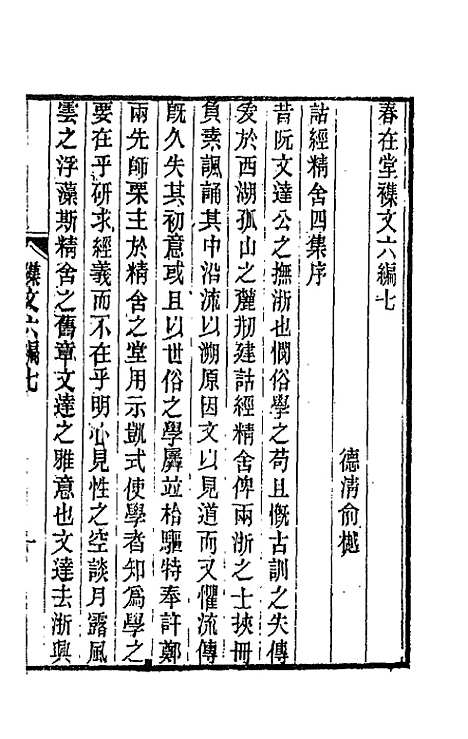 春在堂襍文六編七
德清俞樾
詁經精舍四集序
昔阮文達公之撫浙也憫俗學之苟且慨古訓之失傳
爰於西湖孤山之麓刱建詁經精舍俾兩浙之士挾冊
負素諷誦其中沿流以溯原因文以見道而又懼流傳
既久失其初意或且以世俗之學羼竝枱驅特奉許鄭
兩先師栗主於精舍之堂用示凱式使學者知爲學之
要在乎研求經義而不在乎明心見性之空談月露風
雲之浮藻斯精舍之舊章文達之雅意也文達去浙興
襍文六編七
一